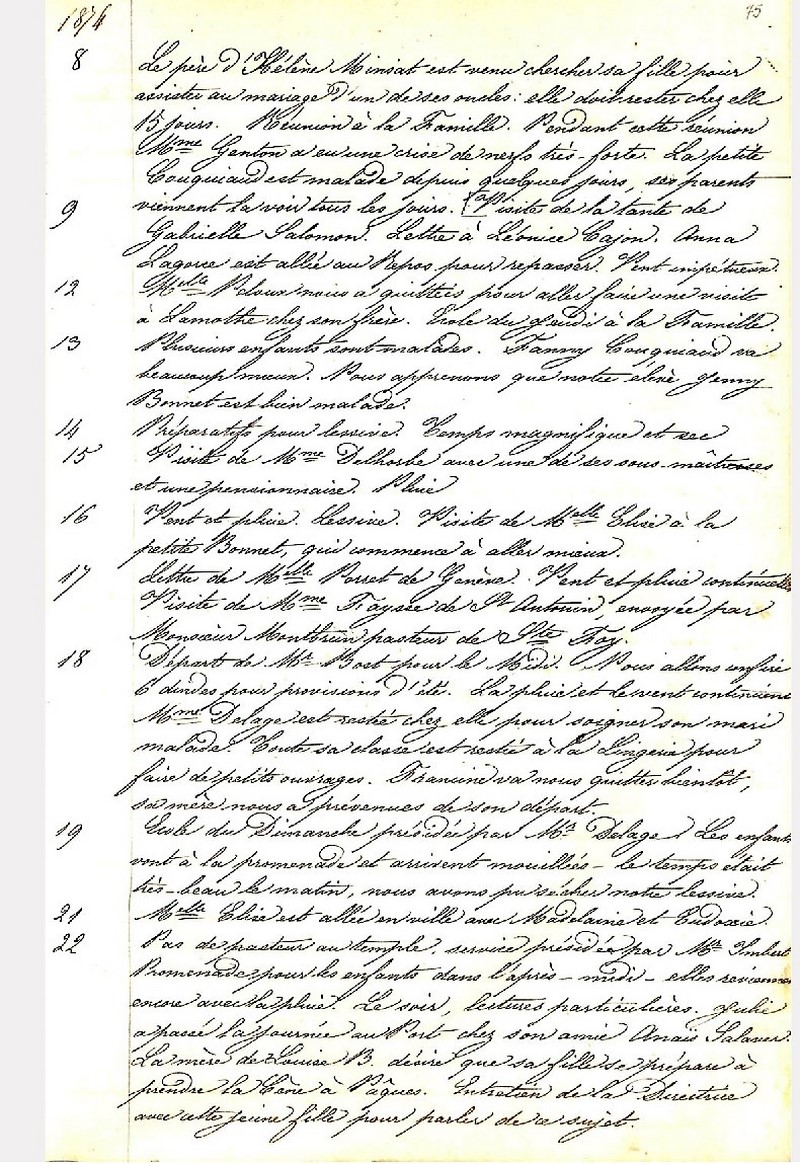 1874
75
8 Le père d'Hélène Minsat est venu chercher sa fille pour
assister au mariage d'un de ses oncles : elle doit rester chez elle
15 jours. Réunion à la Famille. Pendant cette réunion
Mme Genton a eu une crise de nerfs très-forte. La petite
Couquiaud est malade depuis quelques jours, ses parents
viennent la voir tous les jours.
9 Visite de la tante de
Gabrielle Salomon. Lettre à Léonice Cajon. Anna
Lagorce est allée au Repos pour repasser. Vent impétueux.
12 Melle nous a quittées pour aller faire une visite
à Lamothe chez son frère. Ecole du Jeudi à la Famille.
13 Plusieurs enfants sont malades. Fanny Couquiaud va
beaucoup mieux. Nous apprenons que notre élève Jenny
Bonnet est bien malade.
14 Préparatifs pour lessive. Temps magnifique et sec
15 Visite de Mme Delhorbe avec une de ses sous-maîtresses
et une pensionnaire. Pluie
16 Vent et pluie. Lessive. Visite de Melle Elise à la
petite Bonnet, qui commence à aller mieux.
17 Lettre de Melle Porret de Genève. Vent et pluie continuelle
Visite de Mme Faysse de St Antonin, envoyée par
Monsieur Montbrun pasteur de Ste Foy.
18 Départ de Mr Bost pour le Midi. Nous allons confire
6 dindes pour provisions d'été. La pluie et le vent continuent
Mme Delage est restée chez elle pour soigner son mari
malade. Toute sa classe est restée à la Lingerie pour
faire de petits ouvrages. Francine va nous quitter bientôt,
sa mère nous a prévenues de son départ.
19 Ecole du Dimanche présidée par Mr Delage. Les enfants
vont à la promenade et arrivent mouillées - le temps était
très-beau le matin, nous avons pu sécher notre lessive.
21 Melle Elise est allée en ville avec Madelaine et Eudoxie.
22 Pas de pasteur au temple, service présidé par Mr Imbert
Promenade pour les enfants dans l'après-midi - elles reviennent
encore avec la pluie. Le soir, lectures particulières. Julie
a passé la journée au Port chez son amie Anaïs
La mère de Louise B. désire que sa fille se prépare à
prendre la Cène à Pâques. Entretien de la Directrice
avec cette jeune fille pour parler de ce sujet.